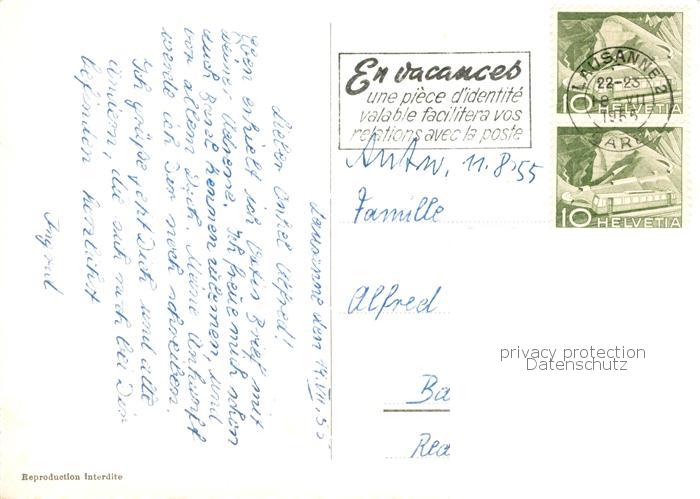 Lausanne den
Lieber Onkel Alfred!
Eben erhielt ich Vatis Brief mit
Deiner Adresse. Ich freue mich schon
nach Basel kommen zu können, und
vor allem Dich. Meine Antwort
werde ich Dir noch schreiben.
Ich grüße jetzt Dich und alle
anderen, die sich noch bei Dir
befinden herzlichst
Ingrid
Reproduction Interdite
En vacances
une pièce d'identité
valable facilitera vos
relations avec la poste
LAUSANNE 2
22-23
1955
GARE
10 HELVETIA
10 HELVETIA
Antw. 11.8.55
Famille
Alfred
privacy protection
Datenschutz
Ba
Rea